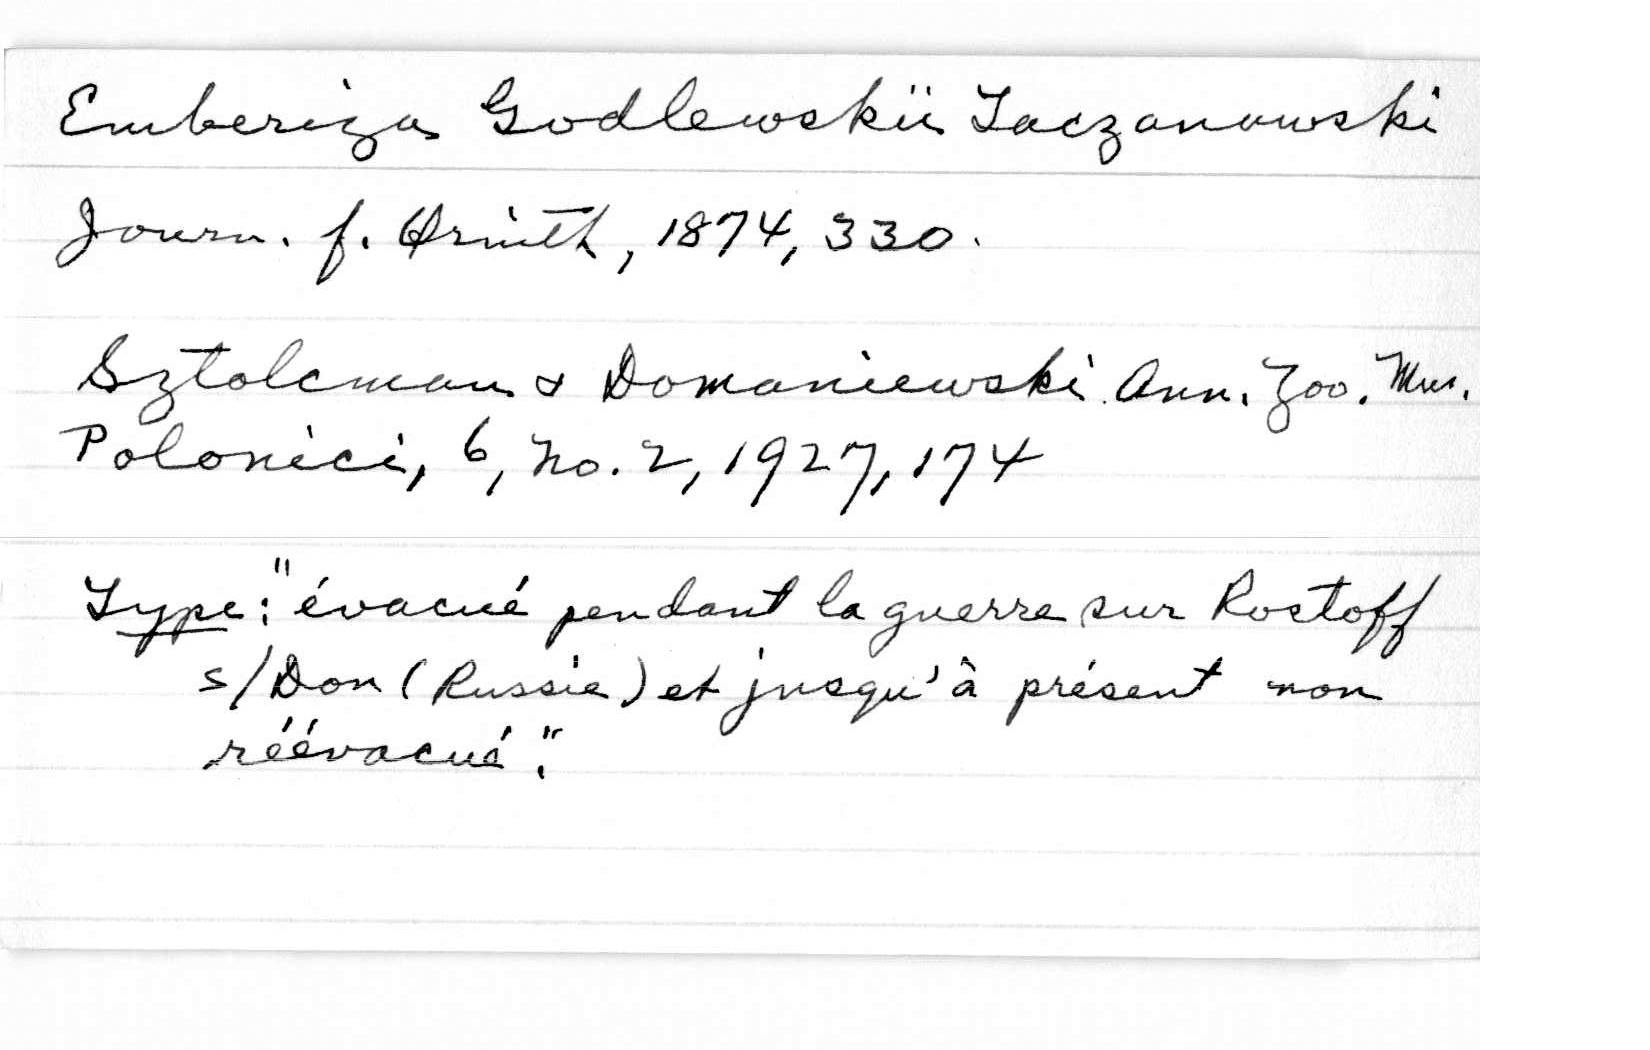 Emberiza Godlewskii Taczanowski
Journ. f. Ornith, 1874, 330.
Sztolcman & Domaniewski Ann. Zoo. Mus.
Polonici, 6, no. 2, 1927, 174
Type: "évacué pendant la guerre sur Rostoff
s/Don (Russie) et jusqu'à présent non
réévacué."